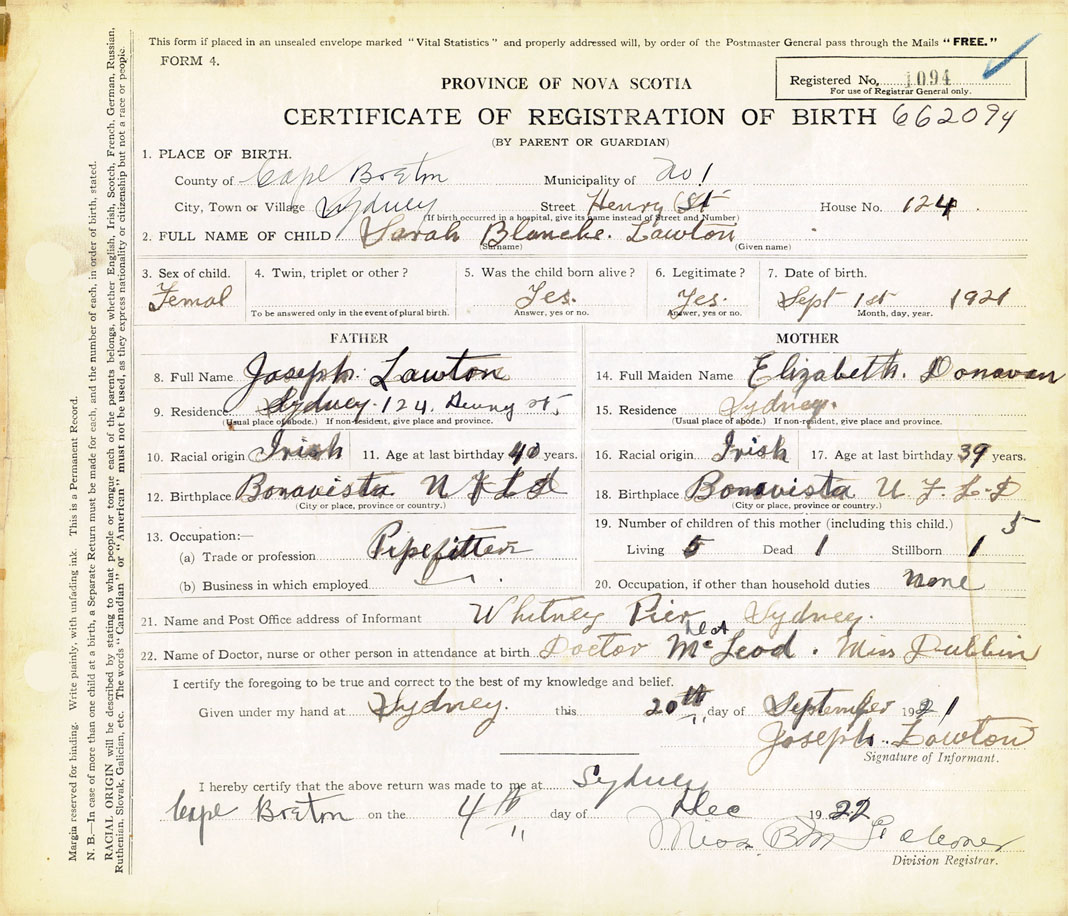 This form if placed in an unsealed envelope marked "Vital Statistics" and properly addressed will, by order of the Postmaster General pass through the Mails "FREE."
FORM 4.
Registered No. 1094
For use of Registrar General only.
PROVINCE OF NOVA SCOTIA
CERTIFICATE OF REGISTRATION OF BIRTH 662094
(BY PARENT OR GUARDIAN)
1. PLACE OF BIRTH.
County of Cape Breton Municipality of No 1
City, Town or Village Sydney Street Henry St House No. 124
(If birth occurred in a hospital, give its name instead of Street and Number)
2. FULL NAME OF CHILD Sarah Blanche. Lawton
(Surname) (Given name)
3. Sex of child. 4. Twin, triplet or other? 5. Was the child born alive? 6. Legitimate? 7. Date of birth.
Femal Yes. Yes. Sept 1st 1921
To be answered only in the event of plural birth. Answer, yes or no. Answer, yes or no. Month, day, year.
FATHER MOTHER
8. Full Name Joseph. Lawton 14. Full Maiden Name Elizabeth. Donavan
9. Residence Sydney. 124. Henry st, 15. Residence Sydney.
(Usual place of abode.) If non-resident, give place and province. (Usual place of abode.) If non-resident, give place and province.
10. Racial origin Irish 11. Age at last birthday 40 years. 16. Racial origin Irish 17. Age at last birthday 39 years.
12. Birthplace Bonavista N F L D 18. Birthplace Bonavista N. F. L-D
(City or place, province or country.) (City or place, province or country.)
13. Occupation:— 19. Number of children of this mother (including this child.) 5
(a) Trade or profession Pipefitter Living 5 Dead 1 Stillborn 1
(b) Business in which employed 20. Occupation, if other than household duties none
21. Name and Post Office address of Informant Whitney Pier Sydney.
22. Name of Doctor, nurse or other person in attendance at birth Doctor McLeod. Miss Dubbin
I certify the foregoing to be true and correct to the best of my knowledge and belief.
Given under my hand at Sydney. this 20th day of September 1921
Joseph. Lawton
Signature of Informant.
I hereby certify that the above return was made to me at Sydney
Cape Breton on the 4th day of Dec 1922
Miss B M
Division Registrar.
Margin reserved for binding. Write plainly, with unfading ink. This is a Permanent Record.
N. B.—In case of more than one child at a birth, a Separate Return must be made for each, and the number of each, in order of birth, stated.
RACIAL ORIGIN will be described by stating to what people or tongue each of the parents belongs, whether English, Irish, Scotch, French, German, Russian,
Ruthenian, Slovak, Galician, etc. The words "Canadian" or "American" must not be used, as they express nationality or citizenship but not a race or people.